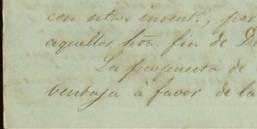 con otras invent, por
aquellos tros. fin de D
La propuesta de
ventaja a favor de la